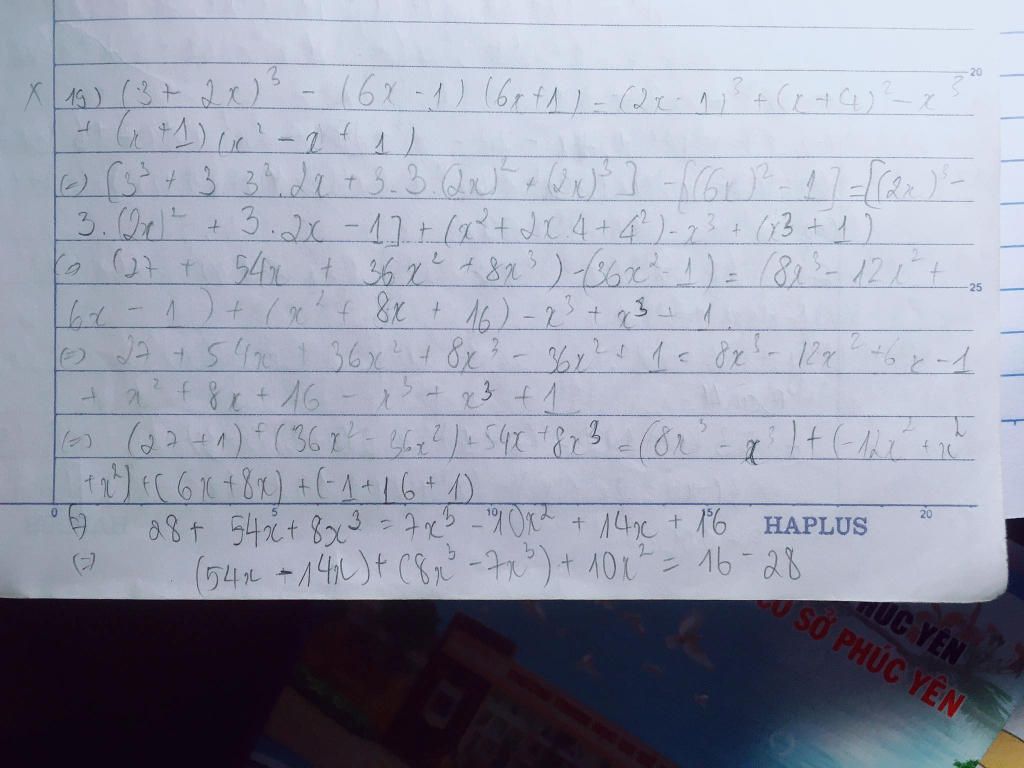 20
x 19) (3 + 2x)³ - (6x - 1) (6x+1) = (2x - 1)³ + (x+4)² - x³
+ (x+1) (x² - x + 1)
(=) [3³ + 3 3².2x + 3.3.(2x)² + (2x)³] - [(6x)² - 1] = [(2x)³ -
3.(2x)² + 3.2x - 1] + (x² + 2x 4 + 4²) - x³ + (x3 + 1)
(=) (27 + 54x + 36x² + 8x³) - (36x² - 1) = (8x³ - 12x² +
25
6x - 1) + (x² + 8x + 16) - x³ + x³ + 1
(=) 27 + 54x + 36x² + 8x³ - 36x² + 1 = 8x³ - 12x² + 6x - 1
+ x² + 8x + 16 - x³ + x³ + 1
(=) (27 + 1) + (36x² - 36x²) + 54x + 8x³ = (8x³ - x³) + (-12x² + x²
+ x²) + (6x + 8x) + (-1 + 16 + 1)
0 5 10 15 20
(=) 28 + 54x + 8x³ = 7x³ - 10x² + 14x + 16 HAPLUS
(=) (54x - 14x) + (8x³ - 7x³) + 10x² = 16 - 28
PHÚC YÊN
CƠ SỞ PHÚC YÊN